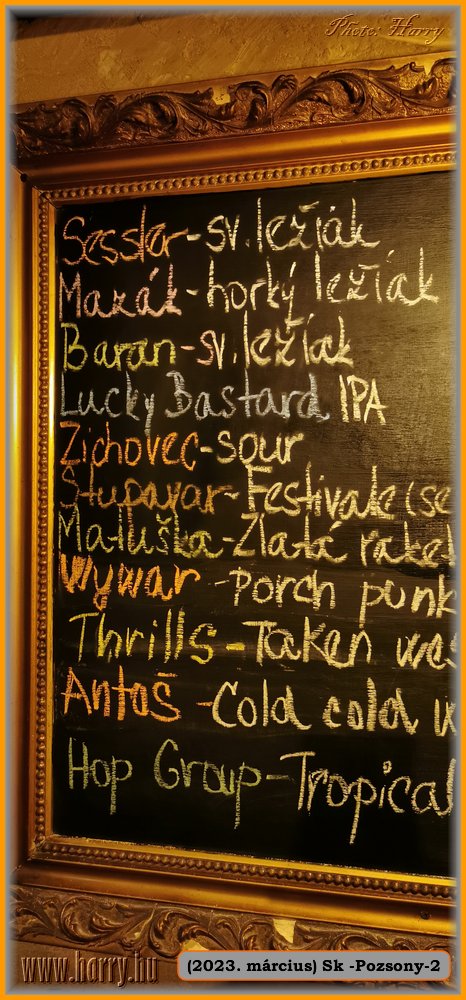 Photo: Harry
Sessler-sv.ležiak
Mazák-horký ležiak
Baran-sv.ležiak
Lucky Bastard IPA
Zichovec-sour
Stupavar-Festivale (se
Matuška-Zlatá raket
Wywar -Porch punk
Thrills-Taken wes
Antoš -Cold cold w
Hop Group-Tropical
www.horry.hu
(2023. március) Sk -Pozsony-2